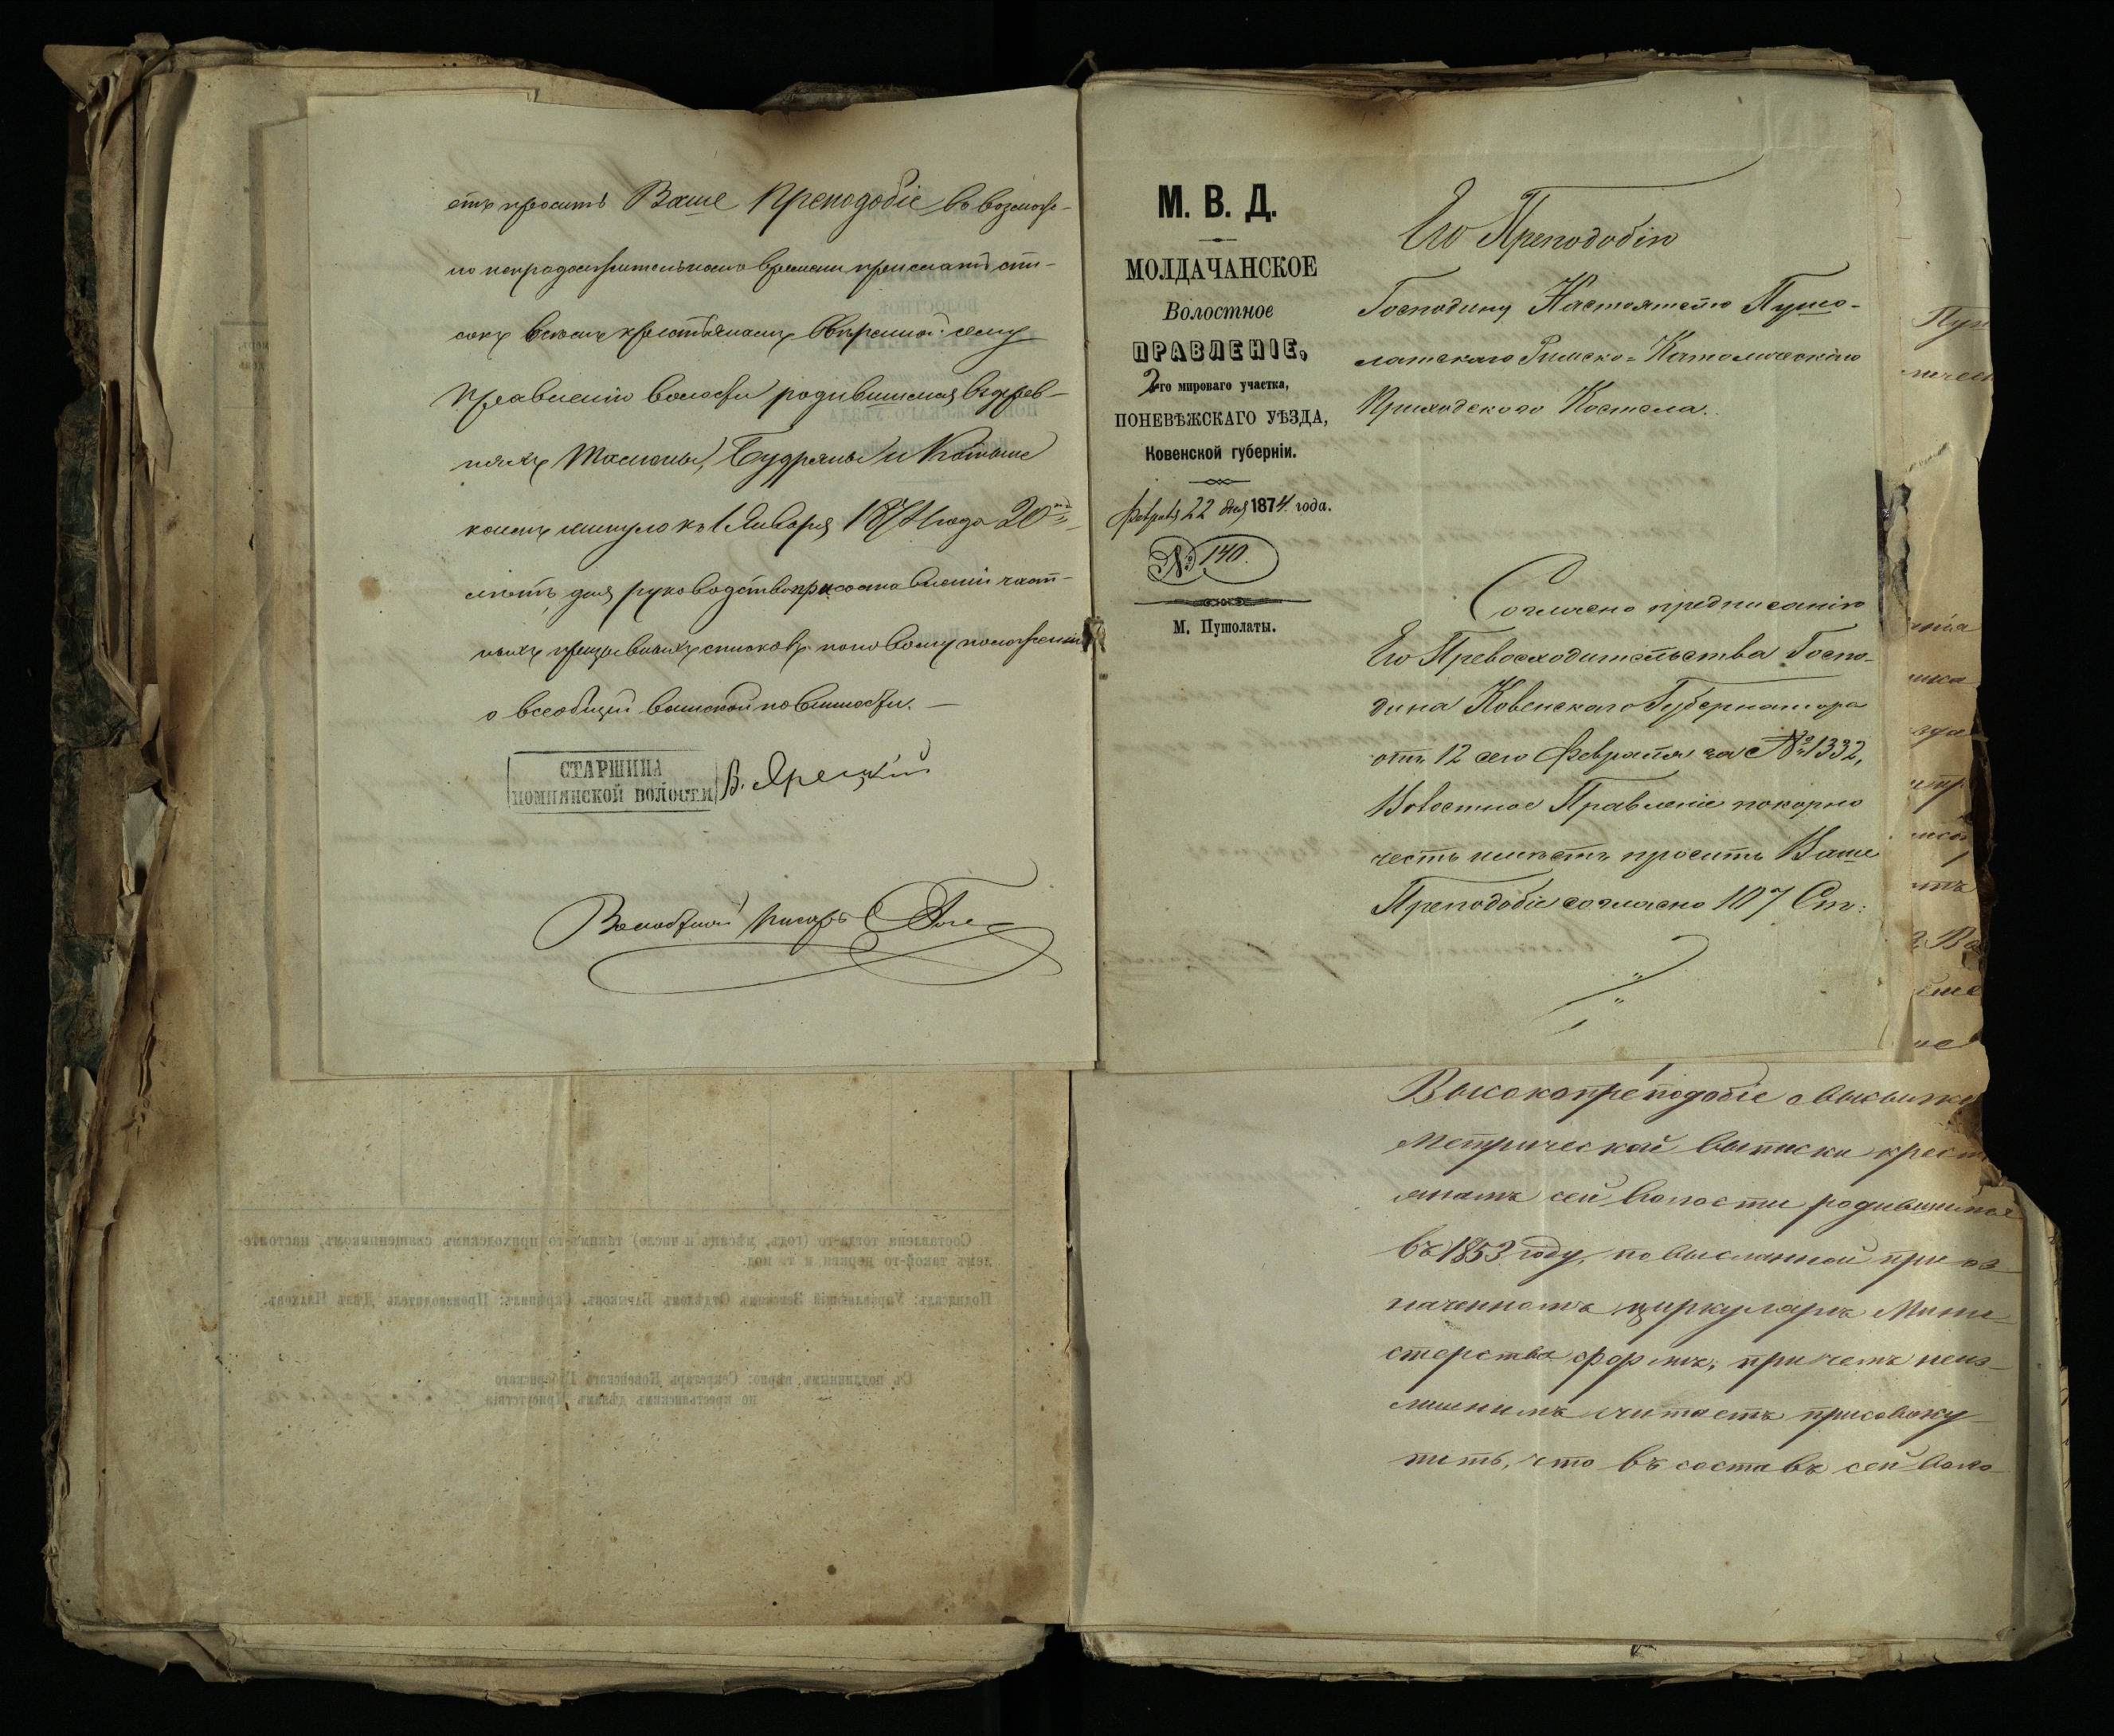 етъ просить Ваше Преподобіе въ возмож-
но непродолжительномъ времени прислать спи-
сокъ всѣмъ крестьянамъ ввѣренной сему
Правленію волости родившимся въ дерев-
няхъ Будряны и
коимъ минуло къ 1 Января 1874 года 20ть
лѣтъ для руководства при составленіи част-
ныхъ призывныхъ списковъ по новому положенію
о всеобщей воинской повинности. —
СТАРШИНА
ПОМПЯНСКОЙ ВОЛОСТИ
В. Ярецкій
Волостной писарь
М. В. Д.
МОЛДАЧАНСКОЕ
Волостное
ПРАВЛЕНІЕ,
2го мироваго участка,
ПОНЕВѢЖСКАГО УѢЗДА,
Ковенской губерніи.
Февраля 22 дня 1874 года.
№ 140.
М. Пушолаты.
Его Преподобію
Господину Настоятелю Пушо-
латскаго Римско-Католическаго
Приходскаго Костела.
Согласно предписанію
Его Превосходительства Госпо-
дина Ковенскаго Губернатора
отъ 12 сего Февраля за № 1332,
Волостное Правленіе покорно
честь имѣетъ просить Ваше
Преподобіе согласно 107 Ст:
Высокопреподобіе о высылке
Метрической выписки крест
янамъ сей волости родившимся
въ 1853 году, по высланной при оз
наченномъ циркулярѣ Мини-
стерства формѣ, причемъ неиз-
лишнимъ считаетъ присовоку-
пить, что въ составъ сей воло-
Составлена тогда-то (годъ, мѣсяцъ и число) такимъ-то приходскимъ священникомъ, настояте-
лемъ такой-то церкви и т. под.
Подписалъ: Управляющій Земскимъ Отдѣломъ Скрѣпилъ: Производитель Дѣлъ
Съ подлиннымъ вѣрно: Секретарь Ковенскаго Губернскаго
по крестьянскимъ дѣламъ Присутствія